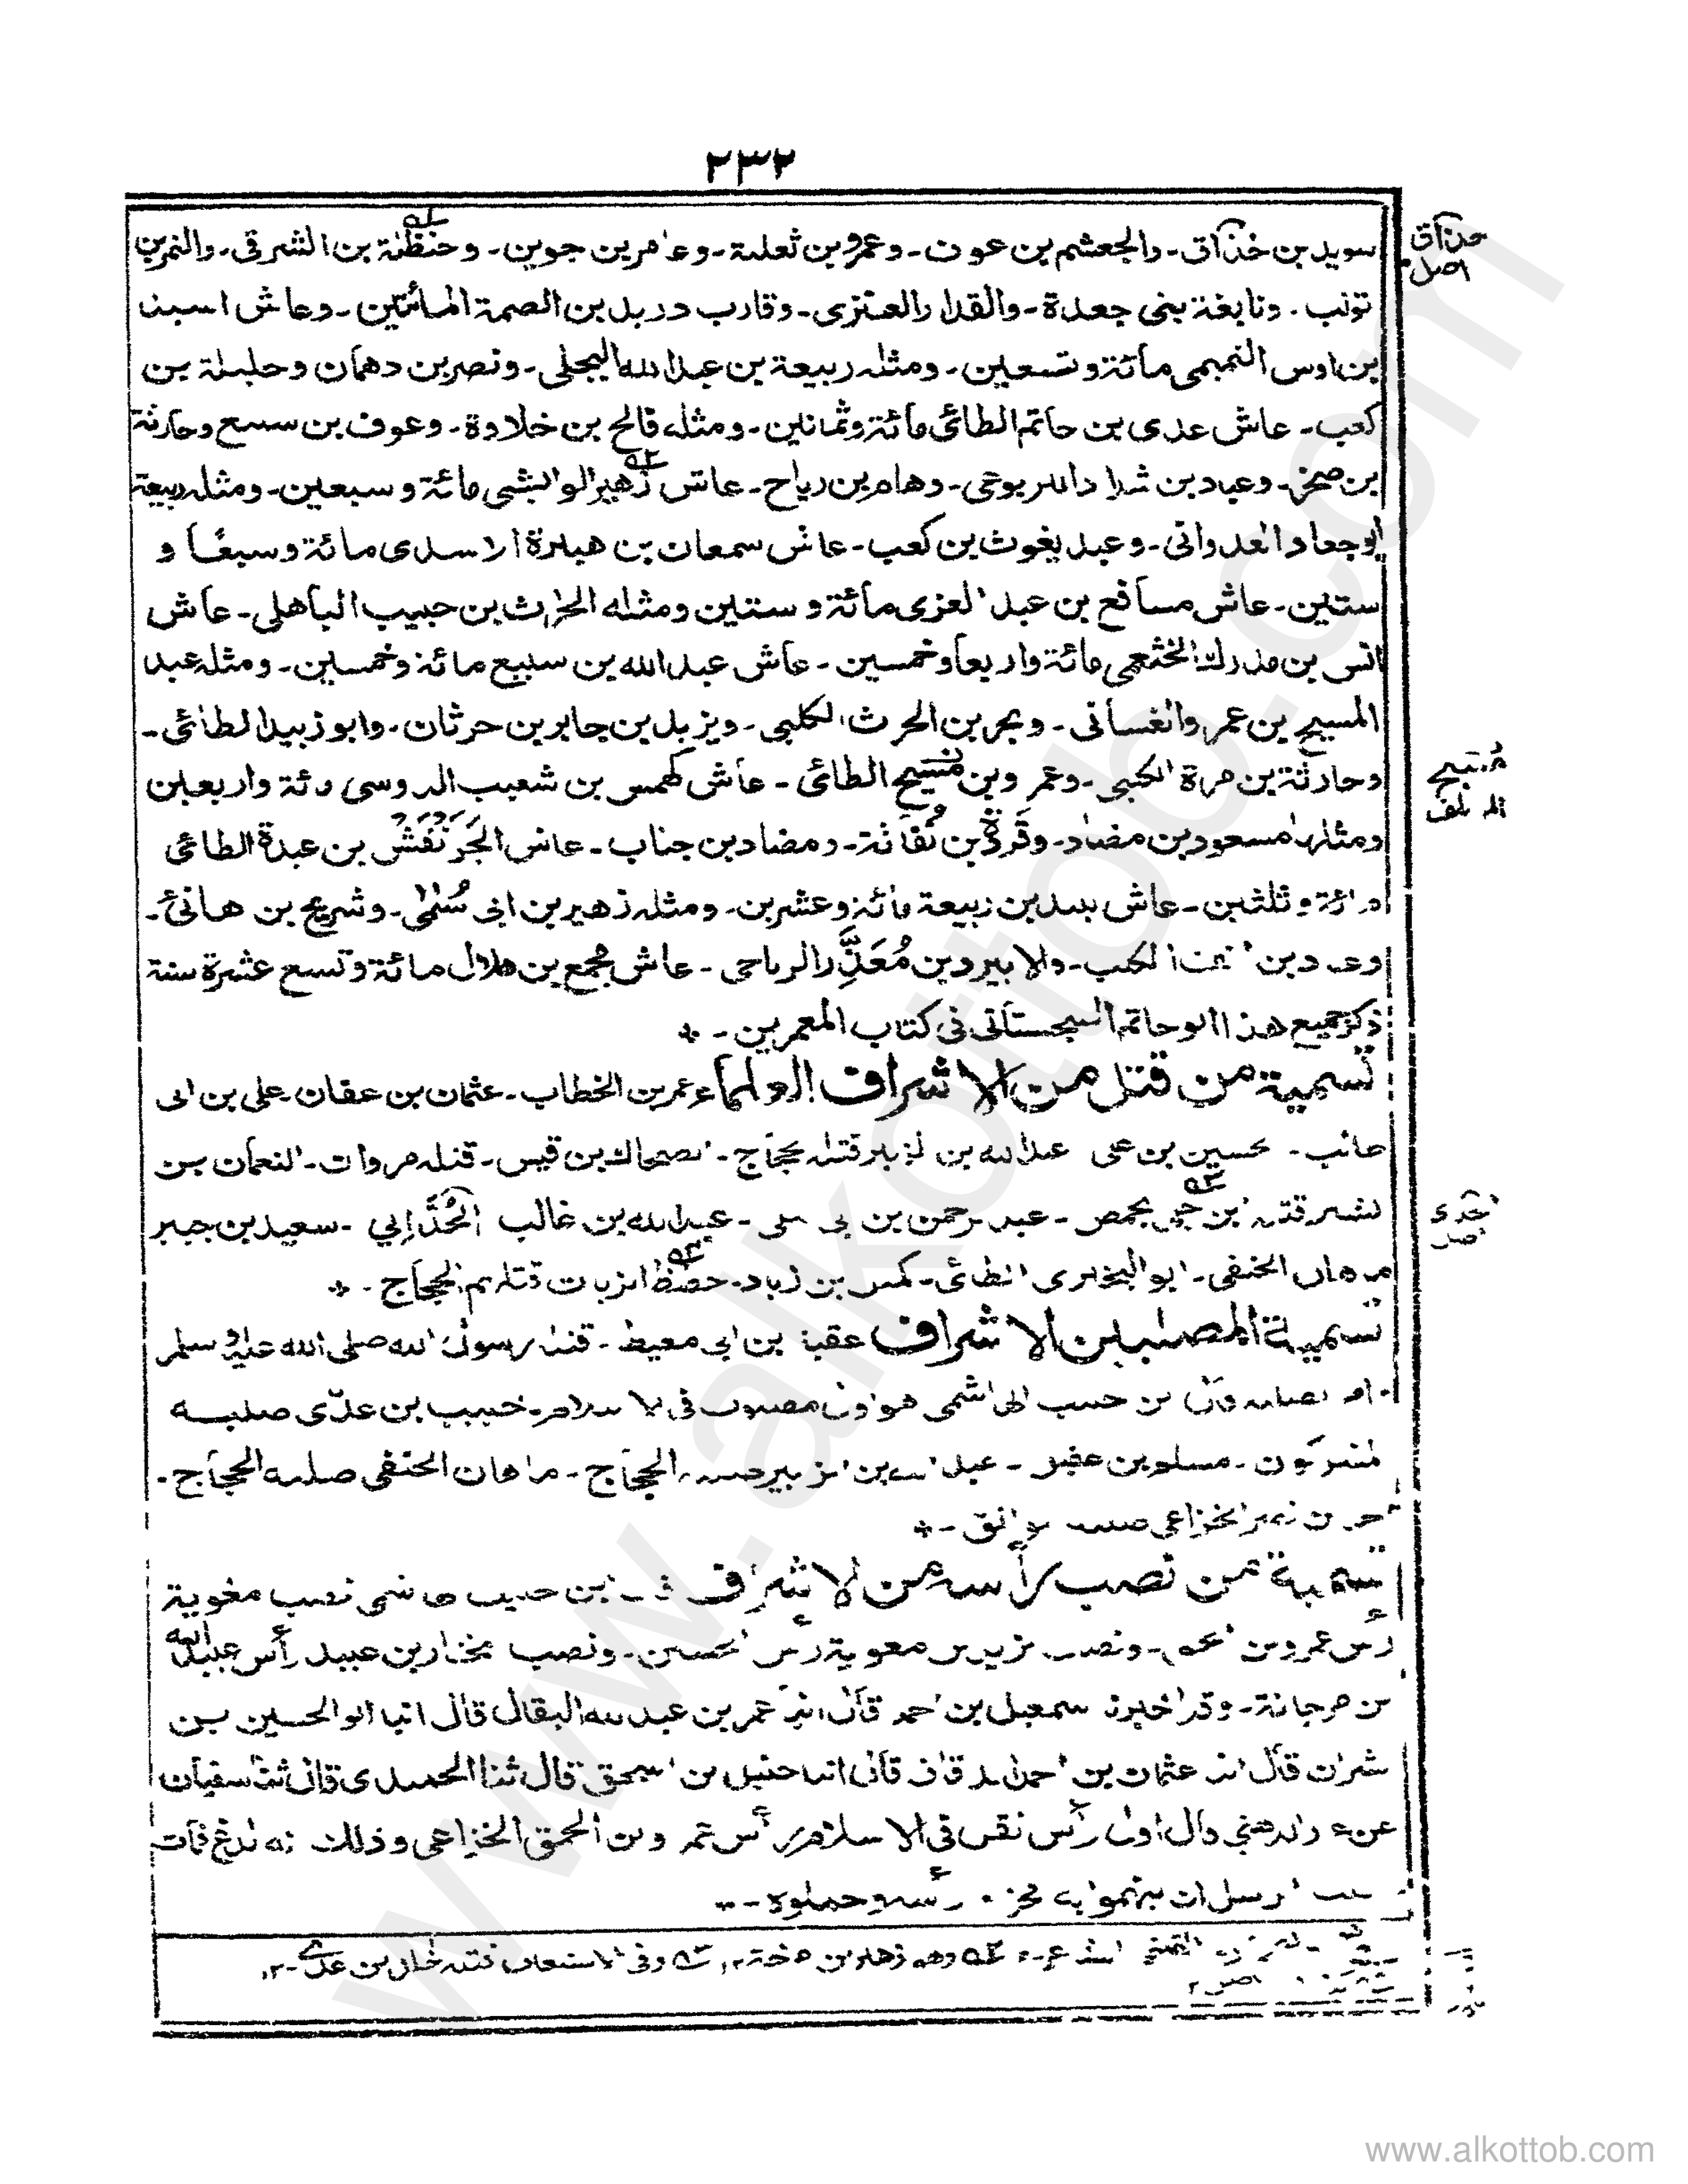 ٢٣٢
سويد بن خذاق - والجعشم بن عوف - وعمرو بن ثعلبة - وعامر بن جوين - وحنظلة بن الشرقي - والنمر بن
تولب - ونابغة بنى جعدة - والقدار العنزى - وقارب دريد بن الصمة المائتين - وعاش
بن اوس التميمى مائة وتسعين - ومثله ربيعة بن عبد الله البجلى - ونصر بن دهمان وحليلة بن
كعب - عاش عدى بن حاتم الطائى مائة وثمانين - ومثله فالح بن خلاوة - وعوف بن سبيع وحارثة
بن صخر - وعباد بن شداد اليربوعى - وهام بن رياح - عاش زهير مائة وسبعين - ومثله ربيعة
ابو جعاد العدوانى - وعبد يغوث بن كعب - عاش سمعان بن هبيرة الاسدى مائة وسبعًا و
ستين - عاش مسافع بن عبد العزى مائة وستين ومثله الحرث بن حبيب الباهلى - عاش
انس بن مدرك الخثعمى مائة واربعا وخمسين - عاش عبد الله بن سبيع مائة وخمسين - ومثله عبد
المسيح بن عمرو الغسانى - وبحر بن الحرث الكلبى - ويزيد بن جابر بن حرثان - وابو زبيد الطائى -
وحارثة بن مرة الكلبى - وعمرو بن الطائى - عاش كهمس بن شعيب الدوسى مائة واربعين
ومثله مسعود بن مصاد - وفروة بن نُفاثة - ومصاد بن جناب - عاش الجَرَنْفَش بن عبدة الطائى
مائة وثلثين - عاش لبيد بن ربيعة مائة وعشرين - ومثله زهير بن ابى سُلمٰى - وشريح بن هانئ -
الكلب - والابيرد بن مُعَذَّر الرياحى - عاش مجمع بن هلال مائة وتسع عشرة سنة
ذكر جميع هذا ابو حاتم السجستانى فى كتاب المعمرين - *
تسمية من قتل من الاشراف العلماء عمر بن الخطاب - عثمان بن عفان - على بن ابى
طالب - الحسين بن على عبد الله بن الزبير قتله الحجاج - الضحاك بن قيس - قتله مروان - النعمان بن
بشير قتله بحمص - عبد الرحمن بن ابى ليلى - عبد الله بن غالب الحُدَّانِي - سعيد بن جبير
ماهان الحنفى - ابو البخترى الطائى - كميل بن زياد - قتلهم الحجاج - *
تسمية المصلبين الاشراف عقبة بن ابى معيط - قتله رسول الله صلى الله عليه وسلم
خبيب بن عدى صلبه
المشركون - مسلم بن عقيل - عبد الله بن الزبير صلبه الحجاج - ماهان الحنفى صلبه الحجاج -
الخزاعى صلبه الواثق - *
تسمية من نصب رأسه من الاشراف قال ابن حبيب الهاشمى نصب معوية
رأس عمرو بن الحمق - ونصب يزيد بن معوية رأس الحسين - ونصب المختار بن عبيد رأس عبيد الله
بن مرجانة - وقد اخبرنا اسمعيل بن احمد قال انبأ عمر بن عبيد الله البقال قال انبا ابو الحسين بن
بشران قال انبا عثمان بن احمد الدقاق قال انبا حنبل بن اسحق قال ثنا الحميدى قال ثنا سفيان
عن عمار الدهنى قال اول رأس نقل فى الاسلام رأس عمرو بن الحمق الخزاعى وذلك انه لدغ فمات
رأسه وحملوه -
وهو زهير بن مرخة ١٢ وفى الاستيعاب قتله خالد بن عدى - ١٢
خذاق
اصل
اصل
www.alkottob.com
www.alkottob.com